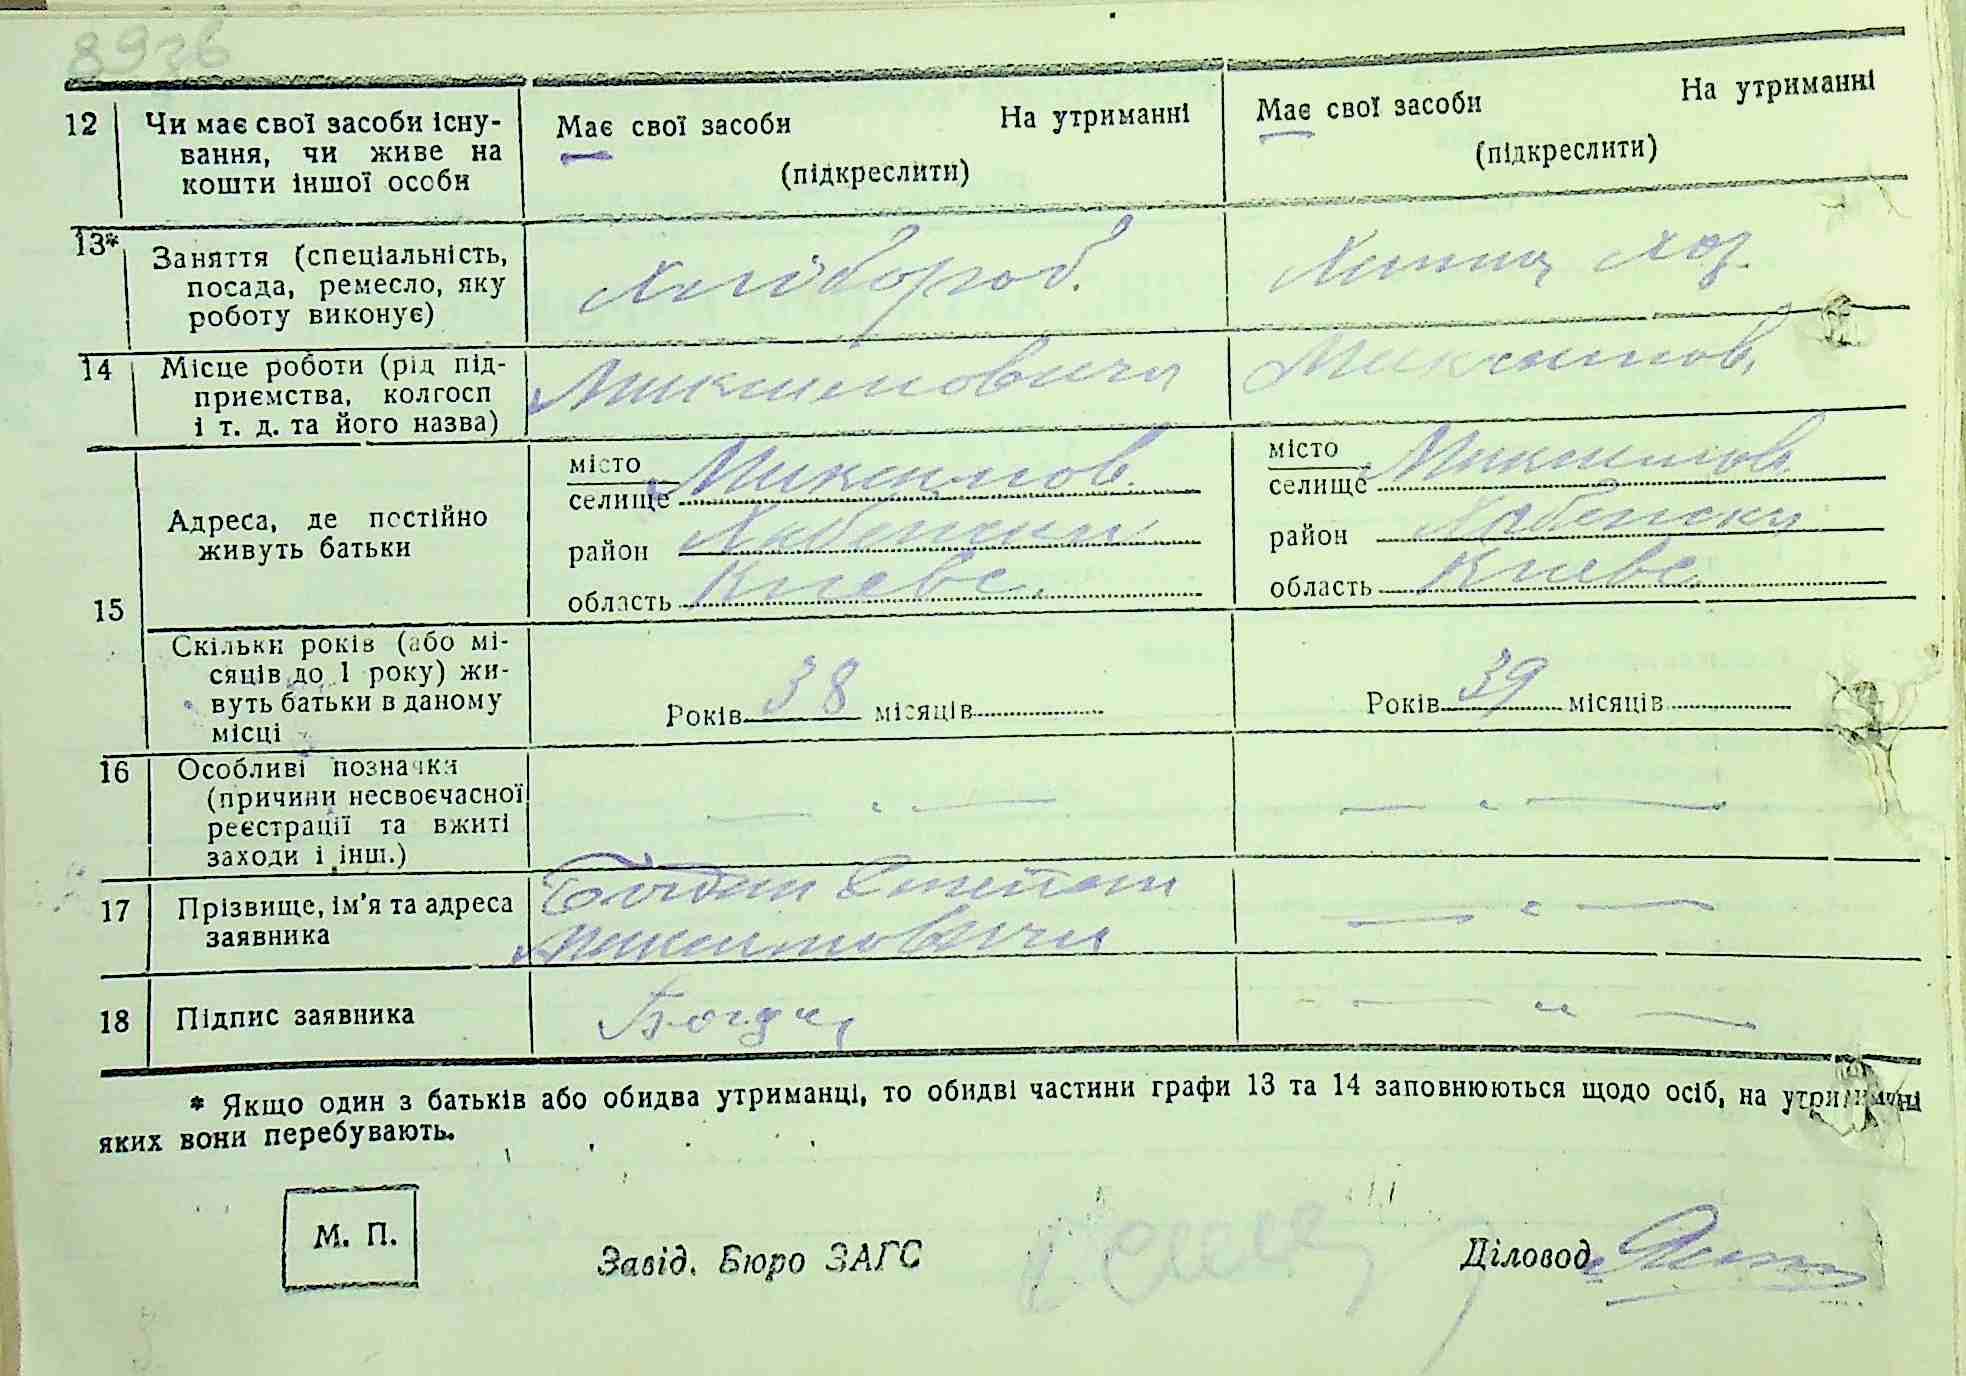 89зв
12 Чи має свої засоби існу-
вання, чи живе на
кошти іншої особи
Має свої засоби На утриманні
(підкреслити)
Має свої засоби На утриманні
(підкреслити)
13* Заняття (спеціальність,
посада, ремесло, яку
роботу виконує)
Хлібороб.
14 Місце роботи (рід під-
приємства, колгосп
і т. д. та його назва)
Максимовичи
Максимов.
15 Адреса, де постійно
живуть батьки
місто
селище Максимов.
район
область Киевс.
місто
селище Максимов.
район
область Киевс.
Скільки років (або мі-
сяців до 1 року) жи-
вуть батьки в даному
місці
Років 38 місяців
Років 39 місяців
16 Особливі позначки
(причини несвоєчасної
реєстрації та вжиті
заходи і інш.)
17 Прізвище, ім'я та адреса
заявника
Богдан Степан
Максимовичи
18 Підпис заявника
Богдан
* Якщо один з батьків або обидва утриманці, то обидві частини графи 13 та 14 заповнюються щодо осіб, на утриманні
яких вони перебувають.
М. П.
Завід. Бюро ЗАГС
Діловод